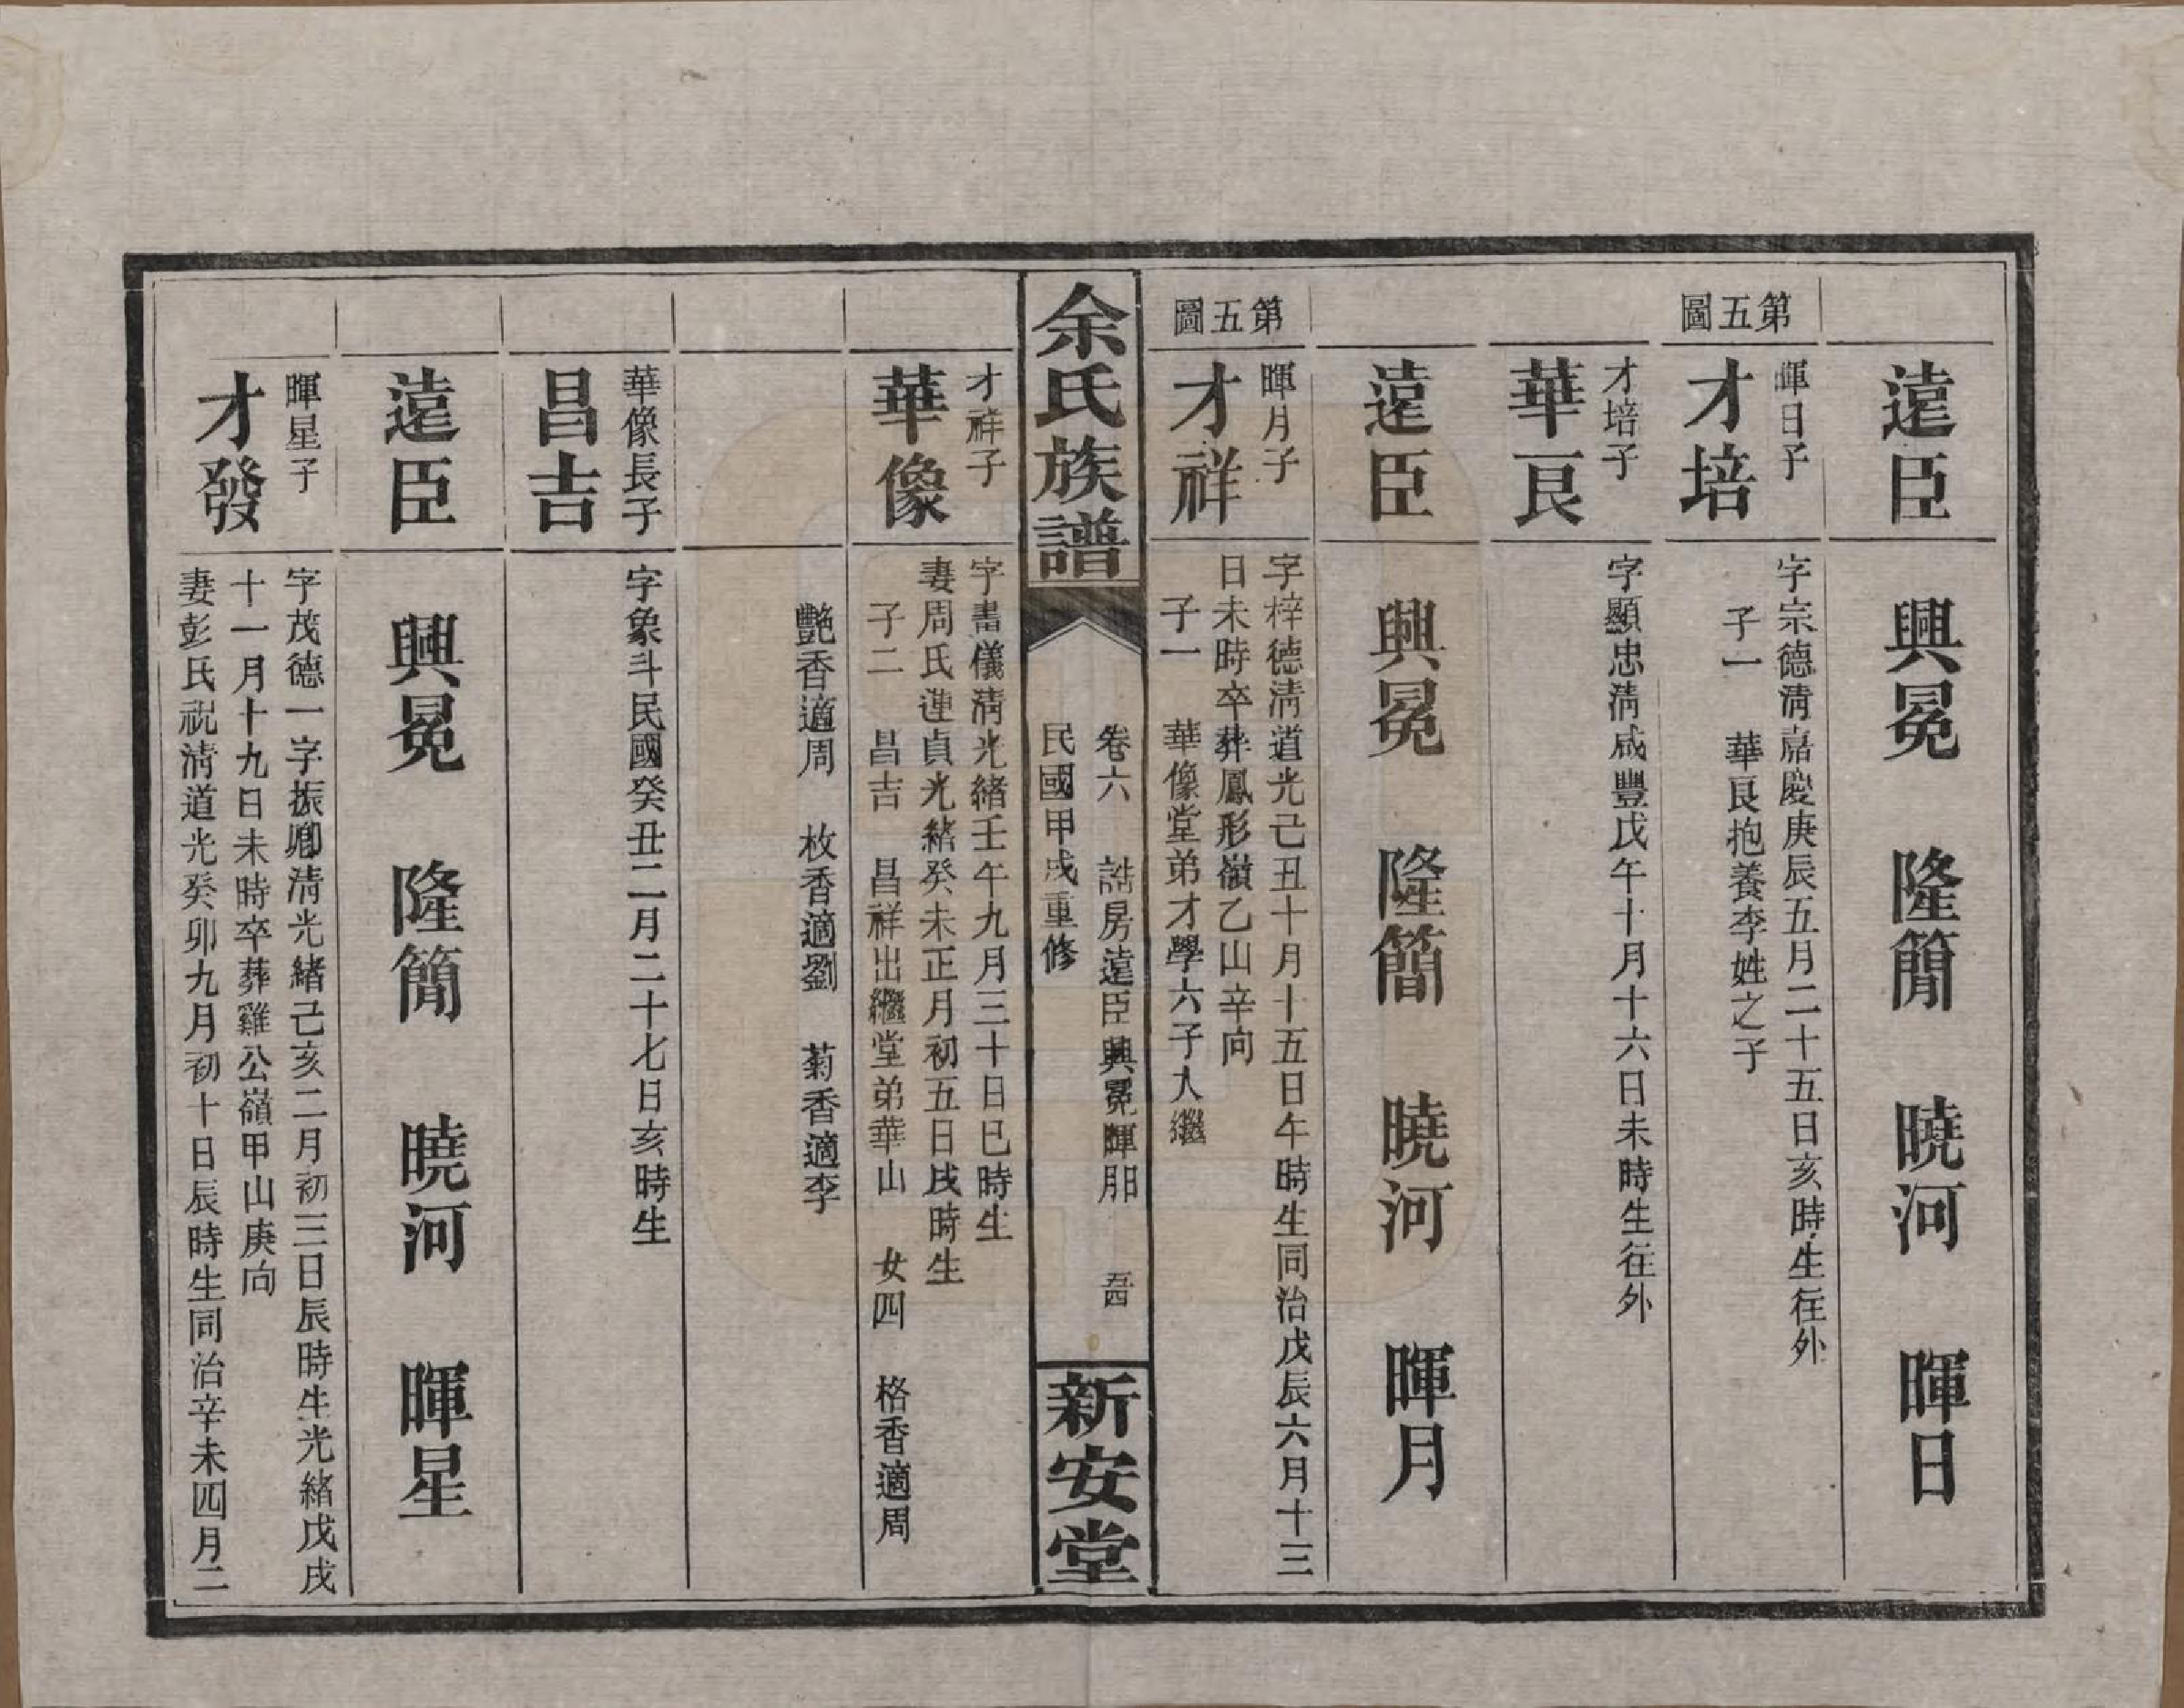 遠臣 興冕 隆簡 曉河 暉日
第五圖
暉日子
才培
字宗德清嘉慶庚辰五月二十五日亥時生往外
子一 華良抱養李姓之子
才培子
華良
字顯忠清咸豐戊午十月十六日未時生往外
遠臣 興冕 隆簡 曉河 暉月
第五圖
暉月子
才祥
字梓德清道光己丑十月十五日午時生同治戊辰六月十三
日未時卒葬鳳形嶺乙山辛向
子一 華像堂弟才學六子入繼
余氏族譜
卷六 誥房遠臣興冕暉朋 五四
民國甲戌重修
新安堂
才祥子
華像
字書儀清光緒壬午九月三十日巳時生
妻周氏蓮貞光緒癸未正月初五日戌時生
子二 昌吉 昌祥出繼堂弟華山 女四 格香適周
艷香適周 枚香適劉 菊香適李
華像長子
昌吉
字象斗民國癸丑二月二十七日亥時生
遠臣 興冕 隆簡 曉河 暉星
暉星子
才發
字茂德一字振卿清光緒己亥二月初三日辰時生光緒戊戌
十一月十九日未時卒葬雞公嶺甲山庚向
妻彭氏祝清道光癸卯九月初十日辰時生同治辛未四月二